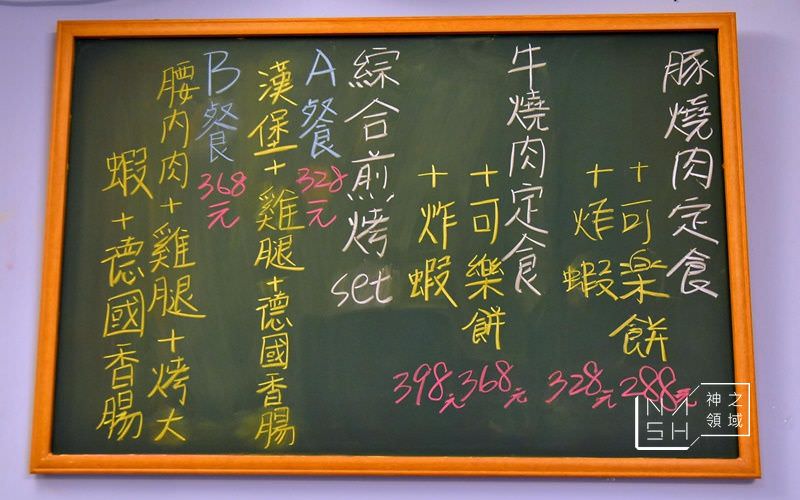 豚燒肉定食
+可楽餅
288元
+炸蝦
328元
牛燒肉定食
+可樂餅
368元
+炸蝦
398元
綜合煎烤set
A餐
328元
漢堡+雞腿+德國香腸
B餐
368元
腰內肉+雞腿+烤大
蝦+德國香腸
NMSH
神之
領域